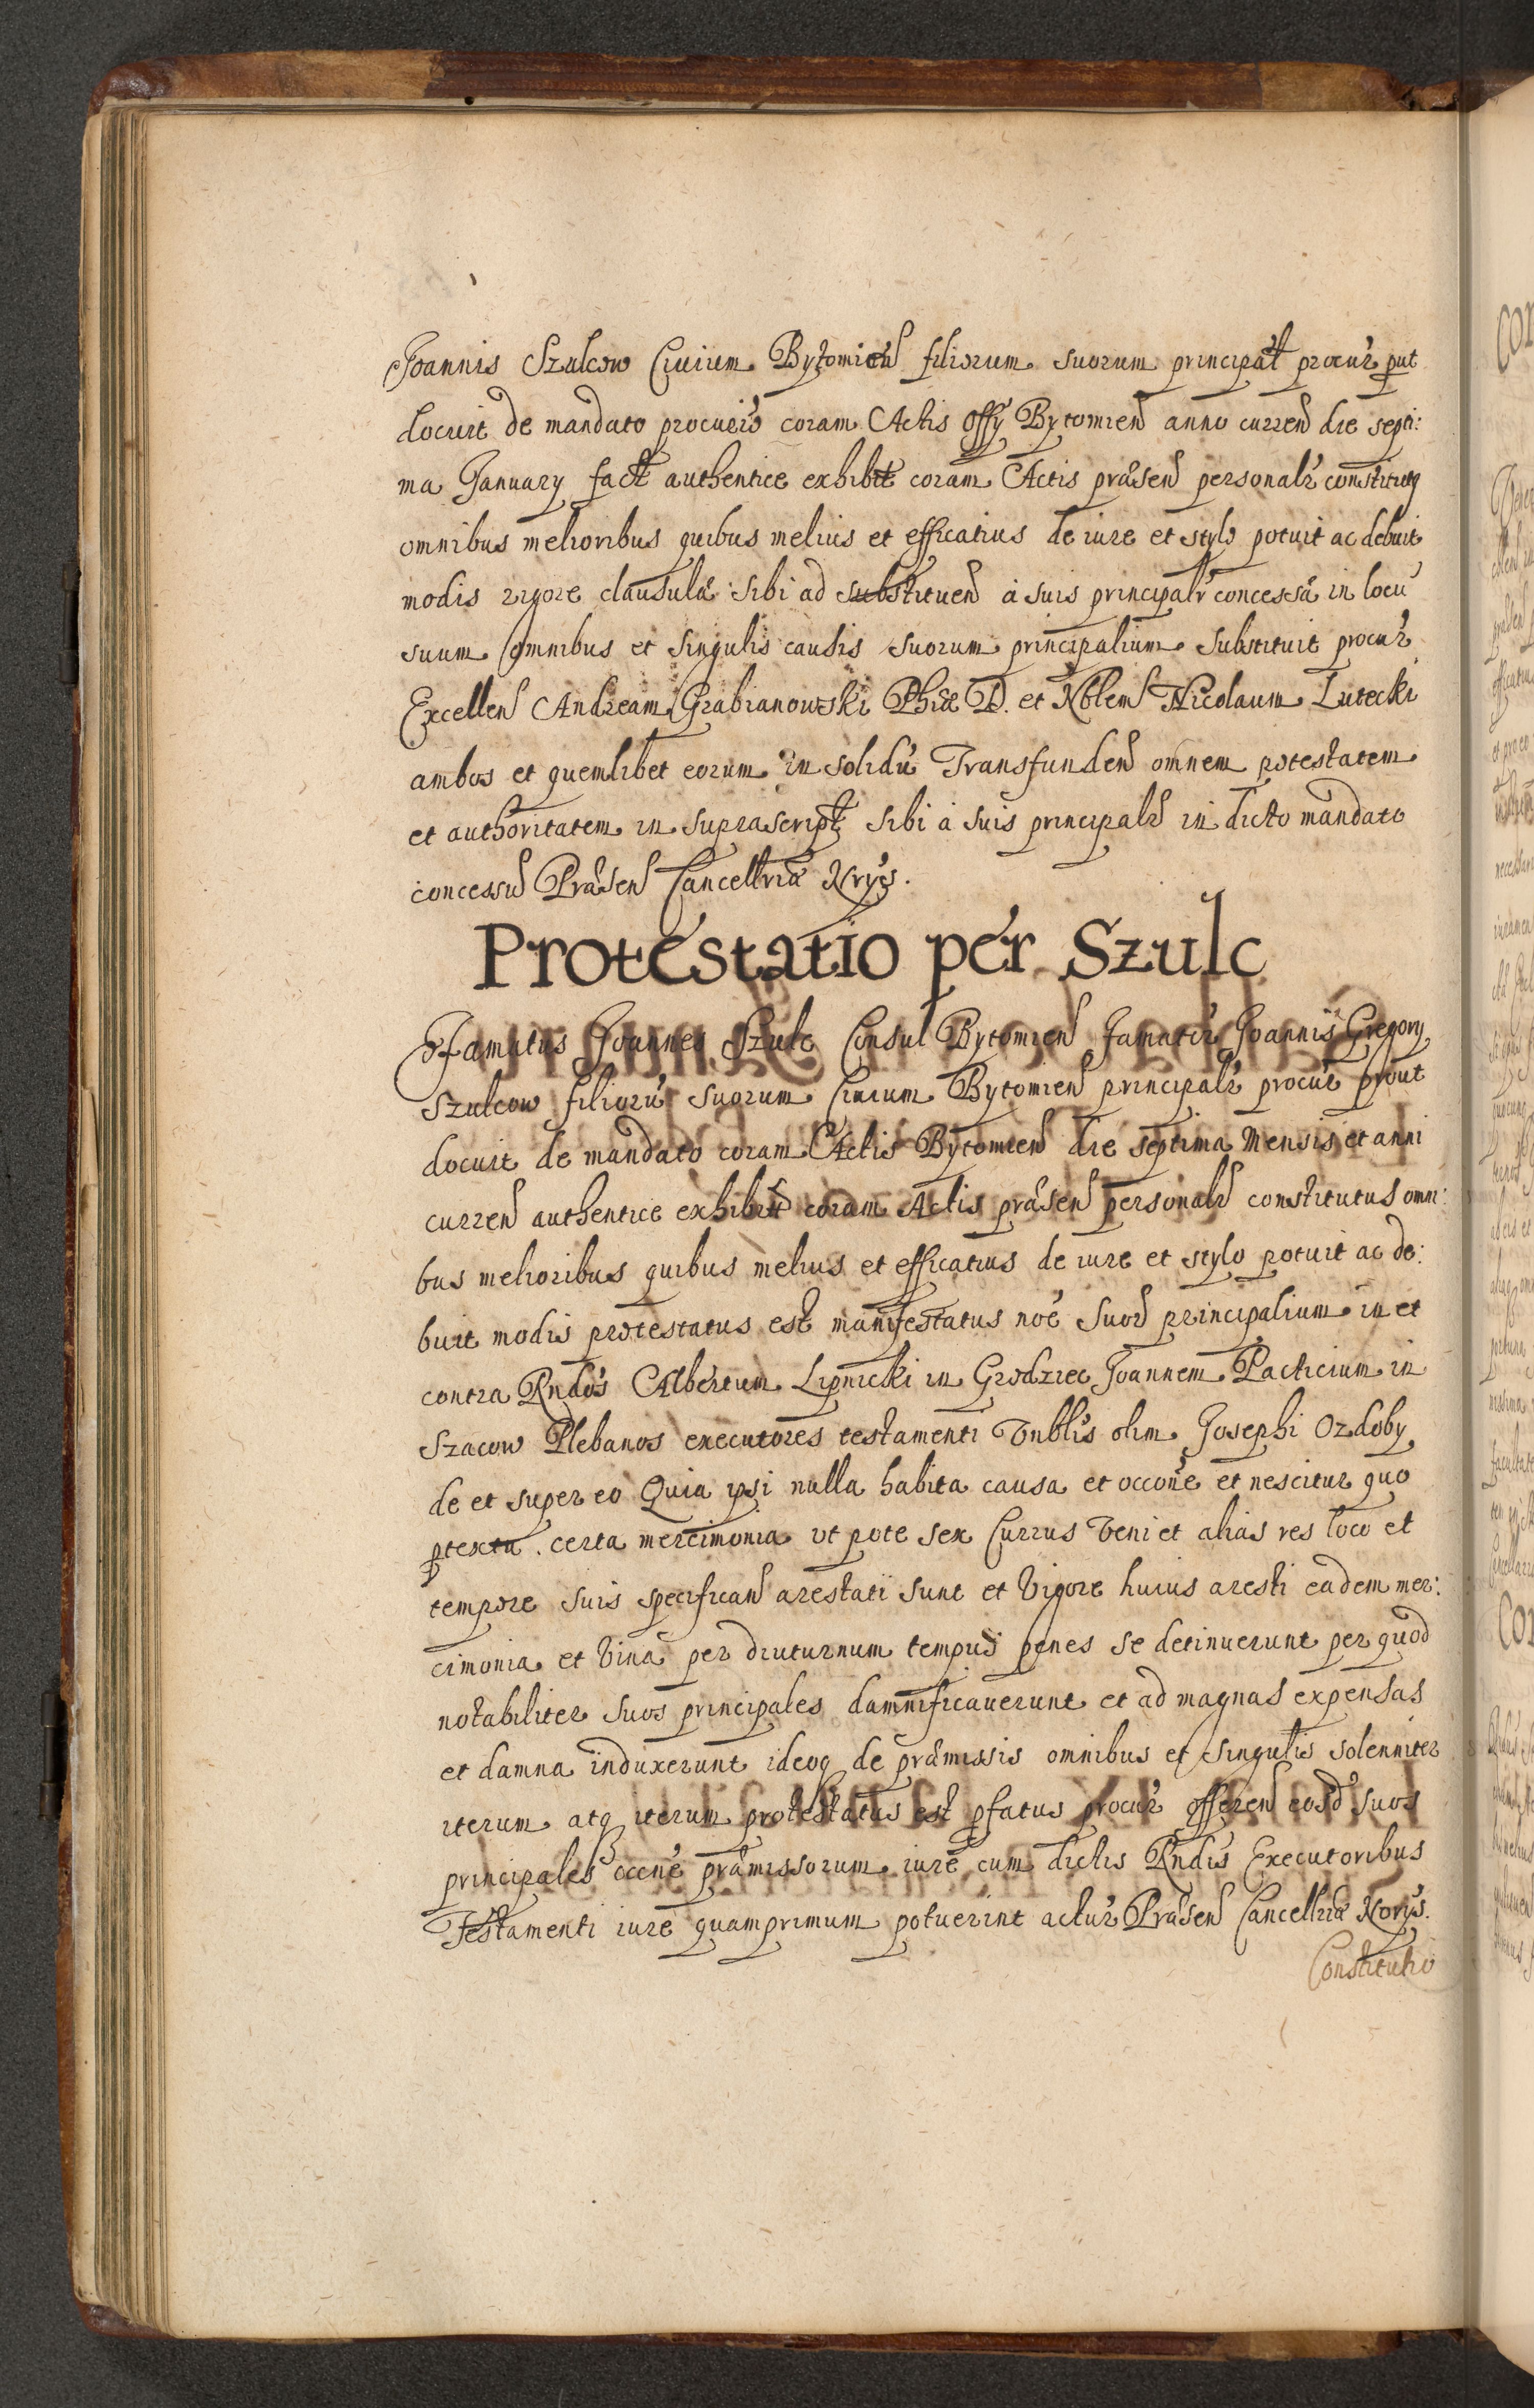 Joannis Szulcow Ciuium Bytomień filiorum suorum principał procur̃ put
docuit de mandato procurio coram Actis Offÿ Bytomień anno curreñ die septi:
ma January fact authentice exhibit coram Actis præseñ personalr̃ constitutq
omnibus melioribus quibus melius et efficatius de iure et stylo potuit ac debuit
modis vigore clausulæ sibi ad substitueñ à suis principalr̃ concessæ in locũ
suum omnibus et singulis causis suorum principalium substituit procur̃
Excelleñ Andream Grabianowski Phiæ D. et Nblem Nicolaum Lutecki
ambos et quemlibet eorum in solidũ Transfundeñ omnem potestatem
et authoritatem in suprascript sibi à suis principalr̃ in dicto mandato
concessũ Præseñ Cancellriæ Nrÿs.
Protestatio per Szulc
Famatus Joannes Szulc Consul Bytomień famator̃ Joannis Gregory
Szulcow filiorũ suorum Ciuium Bytomień principalr̃ procur̃ prout
docuit de mandato coram Actis Bytomień die septima Mensis et anni
curreñ authentice exhibit coram Actis præseñ personalr̃ constitutus omni:
bus melioribus quibus melius et efficatius de iure et stylo potuit ac de:
buit modis protestatus est manifestatus noẽ suor̃ principalium in et
contra Rndos Albertum Lipnicki in Grodziec Joannem Pacticium in
Szacow Plebanos executores testamenti Vnblis olim Josephi Ozdoby
de et super eo Quia ipsi nulla habita causa et occone et nescitur quo
ptextu certa mercimonia vt pote sex Currus Veni et alias res loco et
tempore suis specificañ arestati sunt et Vigore huius aresti eadem mer:
cimonia et Vina per diuturnum tempus penes se detinuerunt per quod
notabiliter suos principales damnificauerunt et ad magnas expensas
et damna induxerunt ideoq de præmissis omnibus et singulis solenniter
iterum atq iterum protestatus est pfatus procur̃ offereñ eosd suos
principales occne præmissorum iure cum dictis Rndis Executoribus
Testamenti iure quamprimum potuerint actur̃ Præseñ Cancellriæ Norÿs.
Constitutio